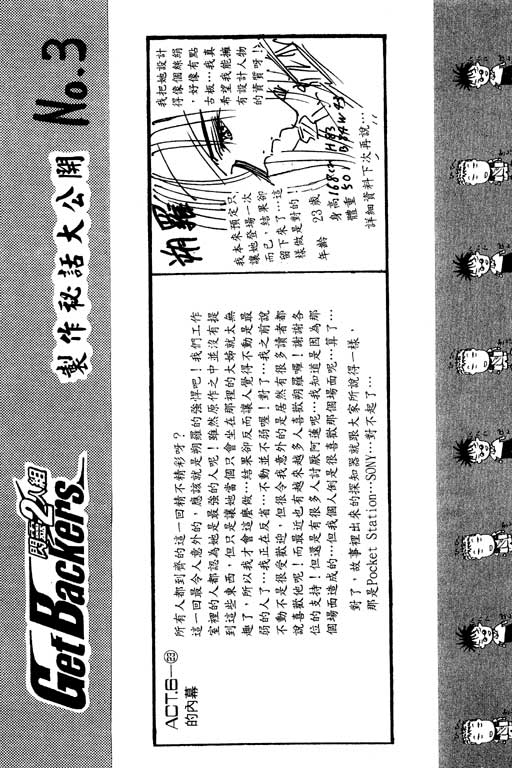 閃靈2人組
GetBackers
製作秘話大公開 No.3
ACT.6—㉓
的內幕
所有人都到齊的這一回精不精彩呀?
這一回最令人意外的,應該就是朔羅的強悍吧!我們工作
室裡的人都認為她是最強的人呢!雖然原作之中並沒有提
到這些東西,但只是讓她當個只會坐在那裡的大姊就太無
趣了,所以我才會這麼做…結果卻反而讓人覺得不動是最
弱的人了…我正在反省…不動並不弱喔!對了…我之前說
不動不是很受歡迎,但很令我意外的是居然有很多讀者都
說喜歡他呢!而最近也有越來越多人喜歡朔羅喔!謝謝各
位的支持!但還是有很多人討厭阿蓮呢…我知道是因為那
個場面造成的…但我個人倒是很喜歡那個場面呢…算了…
對了,故事裡出來的探知器就跟大家所說得一樣,
那是Pocket Station…SONY…對不起了…
我把她設計
得像個絲絹
,好像有點
古板…我真
希望我能擁
有設計人物
的資質呀!
朔羅
我本來預定只
讓她登場一次
而已,結果卻
留下來了…這
樣做是對的!
年齡 23歲
身高168cm
體重50
詳細資料下次再說…